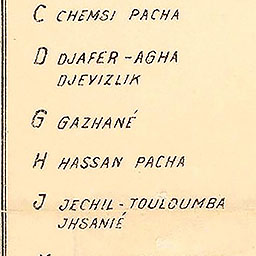 C CHEMSI PACHA
D DJAFER-AGHA
DJEVIZLIK
G GAZHANÉ
H HASSAN PACHA
J JECHIL-TOULOUMBA
JHSANIÉ